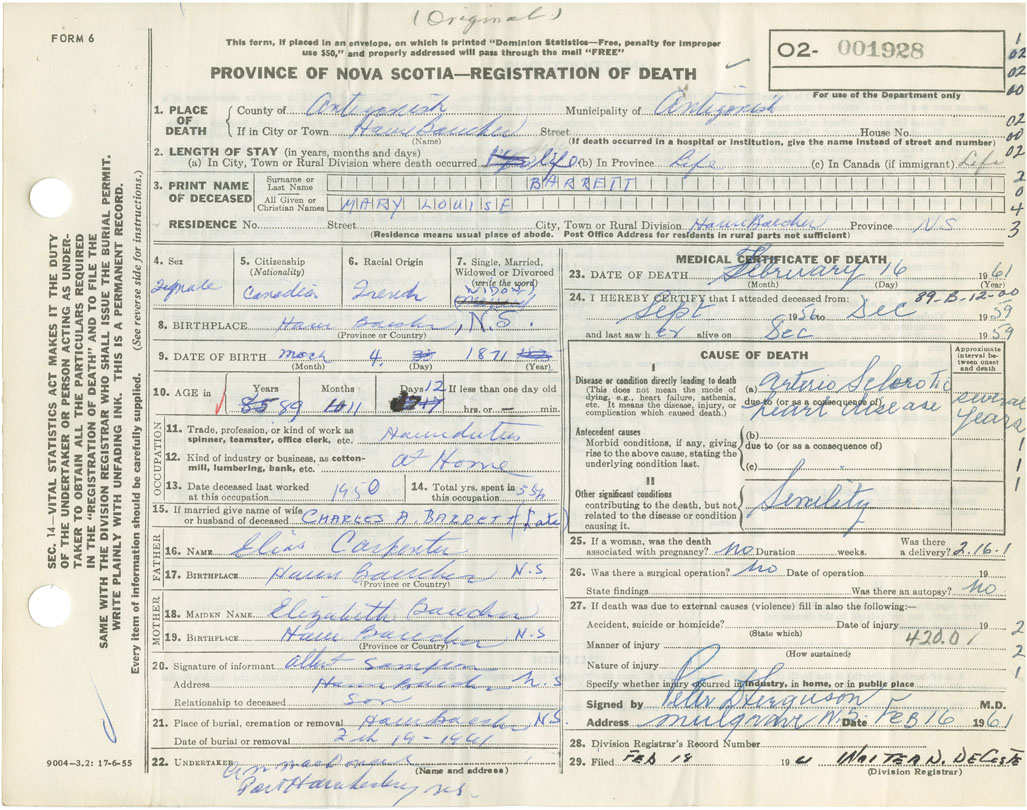 (Original)
FORM 6
This form, if placed in an envelope, on which is printed "Dominion Statistics—Free, penalty for improper
use $50," and properly addressed will pass through the mail "FREE"
02- 001928
For use of the Department only
PROVINCE OF NOVA SCOTIA—REGISTRATION OF DEATH
1
02
02
00
02
00
02
2
0
4
3
SEC. 14—VITAL STATISTICS ACT MAKES IT THE DUTY
OF THE UNDERTAKER OR PERSON ACTING AS UNDER-
TAKER TO OBTAIN ALL THE PARTICULARS REQUIRED
IN THE "REGISTRATION OF DEATH" AND TO FILE THE
SAME WITH THE DIVISION REGISTRAR WHO SHALL ISSUE THE BURIAL PERMIT.
WRITE PLAINLY WITH UNFADING INK. THIS IS A PERMANENT RECORD.
Every item of information should be carefully supplied. (See reverse side for instructions.)
1. PLACE OF DEATH County of Antigonish Municipality of Antigonish
If in City or Town Havre Boucher Street House No.
(Name) (If death occurred in a hospital or institution, give the name instead of street and number)
2. LENGTH OF STAY (in years, months and days)
(a) In City, Town or Rural Division where death occurred life (b) In Province Life (c) In Canada (if immigrant) Life
3. PRINT NAME OF DECEASED Surname or Last Name BARRETT
All Given or Christian Names MARY LOUISE
RESIDENCE No. Street City, Town or Rural Division Havre Boucher Province N.S
(Residence means usual place of abode. Post Office Address for residents in rural parts not sufficient)
4. Sex
Female
5. Citizenship
(Nationality)
Canadian
6. Racial Origin
French
7. Single, Married,
Widowed or Divorced
(write the word)
WIDOW
8. BIRTHPLACE Havre Boucher, N.S.
(Province or Country)
9. DATE OF BIRTH March 4 1871
(Month) (Day) (Year)
10. AGE in Years Months Days If less than one day old
85 89 10 11 12 17 hrs. or — min.
OCCUPATION
11. Trade, profession, or kind of work as
spinner, teamster, office clerk, etc.
12. Kind of industry or business, as cotton-
mill, lumbering, bank, etc. At Home
13. Date deceased last worked
at this occupation 1950
14. Total yrs. spent in
this occupation
15. If married give name of wife
or husband of deceased CHARLES A. BARRETT (Late)
FATHER
16. NAME Elias Carpenter
17. BIRTHPLACE Havre Boucher N.S.
(Province or Country)
MOTHER
18. MAIDEN NAME Elizabeth Boucher
19. BIRTHPLACE Havre Boucher N.S
(Province or Country)
20. Signature of informant Albert Sampson
Address Havre Boucher N.S
Relationship to deceased son
21. Place of burial, cremation or removal Havre Boucher N.S
Date of burial or removal Feb 19-1961
22. UNDERTAKER
(Name and address)
Port Hawkesbury N.S.
9004—3,2: 17-6-55
MEDICAL CERTIFICATE OF DEATH
23. DATE OF DEATH February 16 1961
(Month) (Day) (Year)
24. I HEREBY CERTIFY that I attended deceased from: 89-B-12-00
Sept 1956 to Dec 1959
and last saw her alive on Dec 1959
CAUSE OF DEATH
Approximate
interval be-
tween onset
and death
I
Disease or condition directly leading to death
(This does not mean the mode of
dying, e.g., heart failure, asthenia,
etc. It means the disease, injury, or
complication which caused death.)
(a) Arterio Sclerotic
due to (or as a consequence of)
heart disease
several
years
Antecedent causes
Morbid conditions, if any, giving
rise to the above cause, stating the
underlying condition last.
(b)
due to (or as a consequence of)
(c)
1
1
1
II
Other significant conditions
contributing to the death, but not
related to the disease or condition
causing it.
Senility
25. If a woman, was the death
associated with pregnancy? no Duration weeks. Was there
a delivery? 2-16-1
26. Was there a surgical operation? no Date of operation 19
State findings Was there an autopsy? no
27. If death was due to external causes (violence) fill in also the following:—
Accident, suicide or homicide? Date of injury 19
(State which)
Manner of injury 420.0
(How sustained)
Nature of injury
Specify whether injury occurred in industry, in home, or in public place
2
2
1
Signed by Peter S Ferguson M.D.
Address Mulgrave N.S. Date FEB 16 1961
28. Division Registrar's Record Number
29. Filed FEB 18 19 WALTER N. DECOSTE
(Division Registrar)